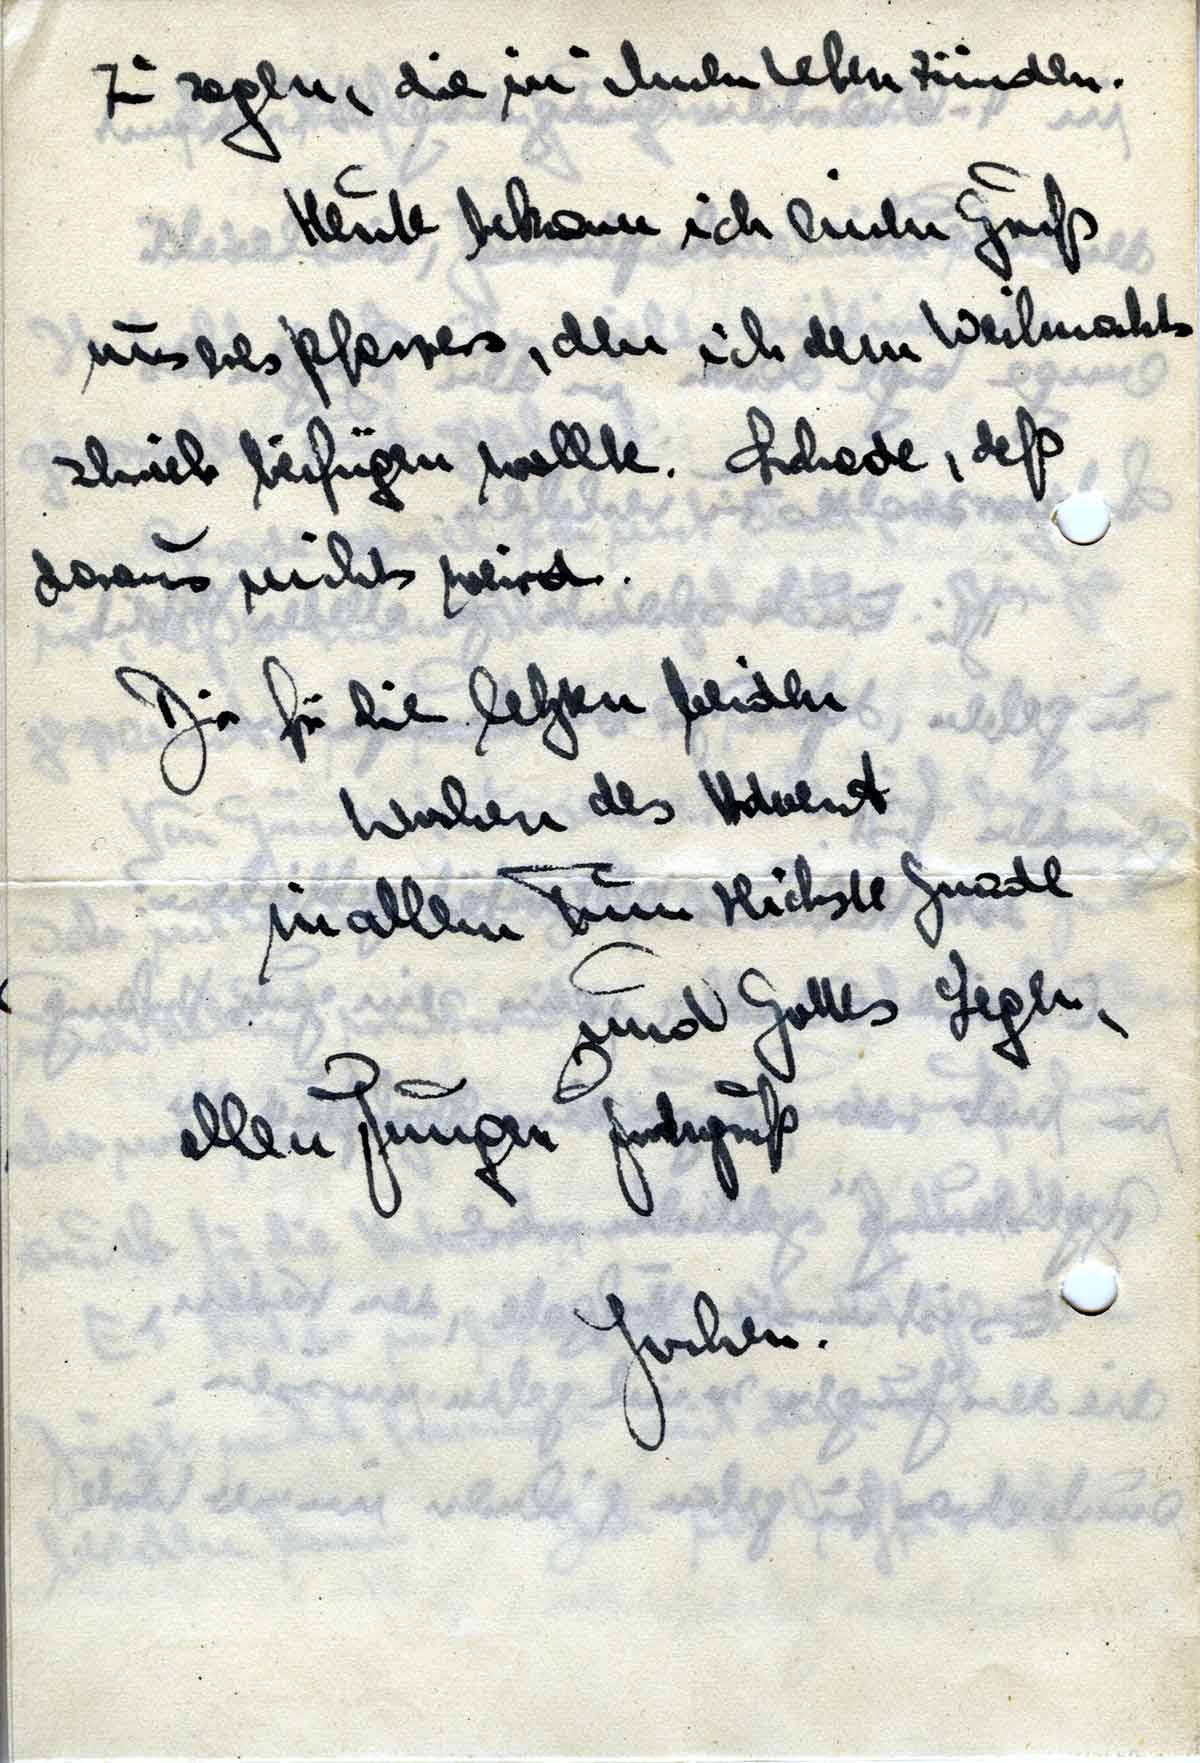 zu sagen, die in ihnen Leben zünden.
Heute bekam ich einen Gruß
unseres Pfarrers, den ich dem Weihnachts
beifügen wollte. Schade, daß
daraus nichts wird.
Dir für die letzten beiden
Wochen des Advent
in allem Tun Gnade
und Gottes Segen,
allen Jungen
Jochen.